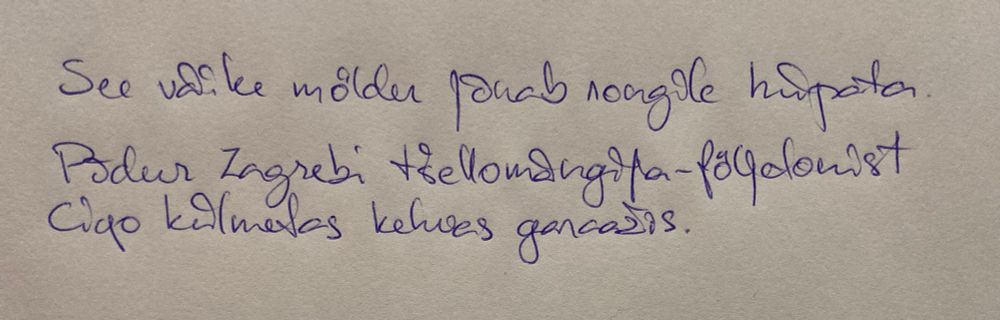 See väike mölder jõuab rongile hüpata.
Põdur Zagrebi tšellomängija-följetonist
Ciqo külmetas kehvas garaažis.